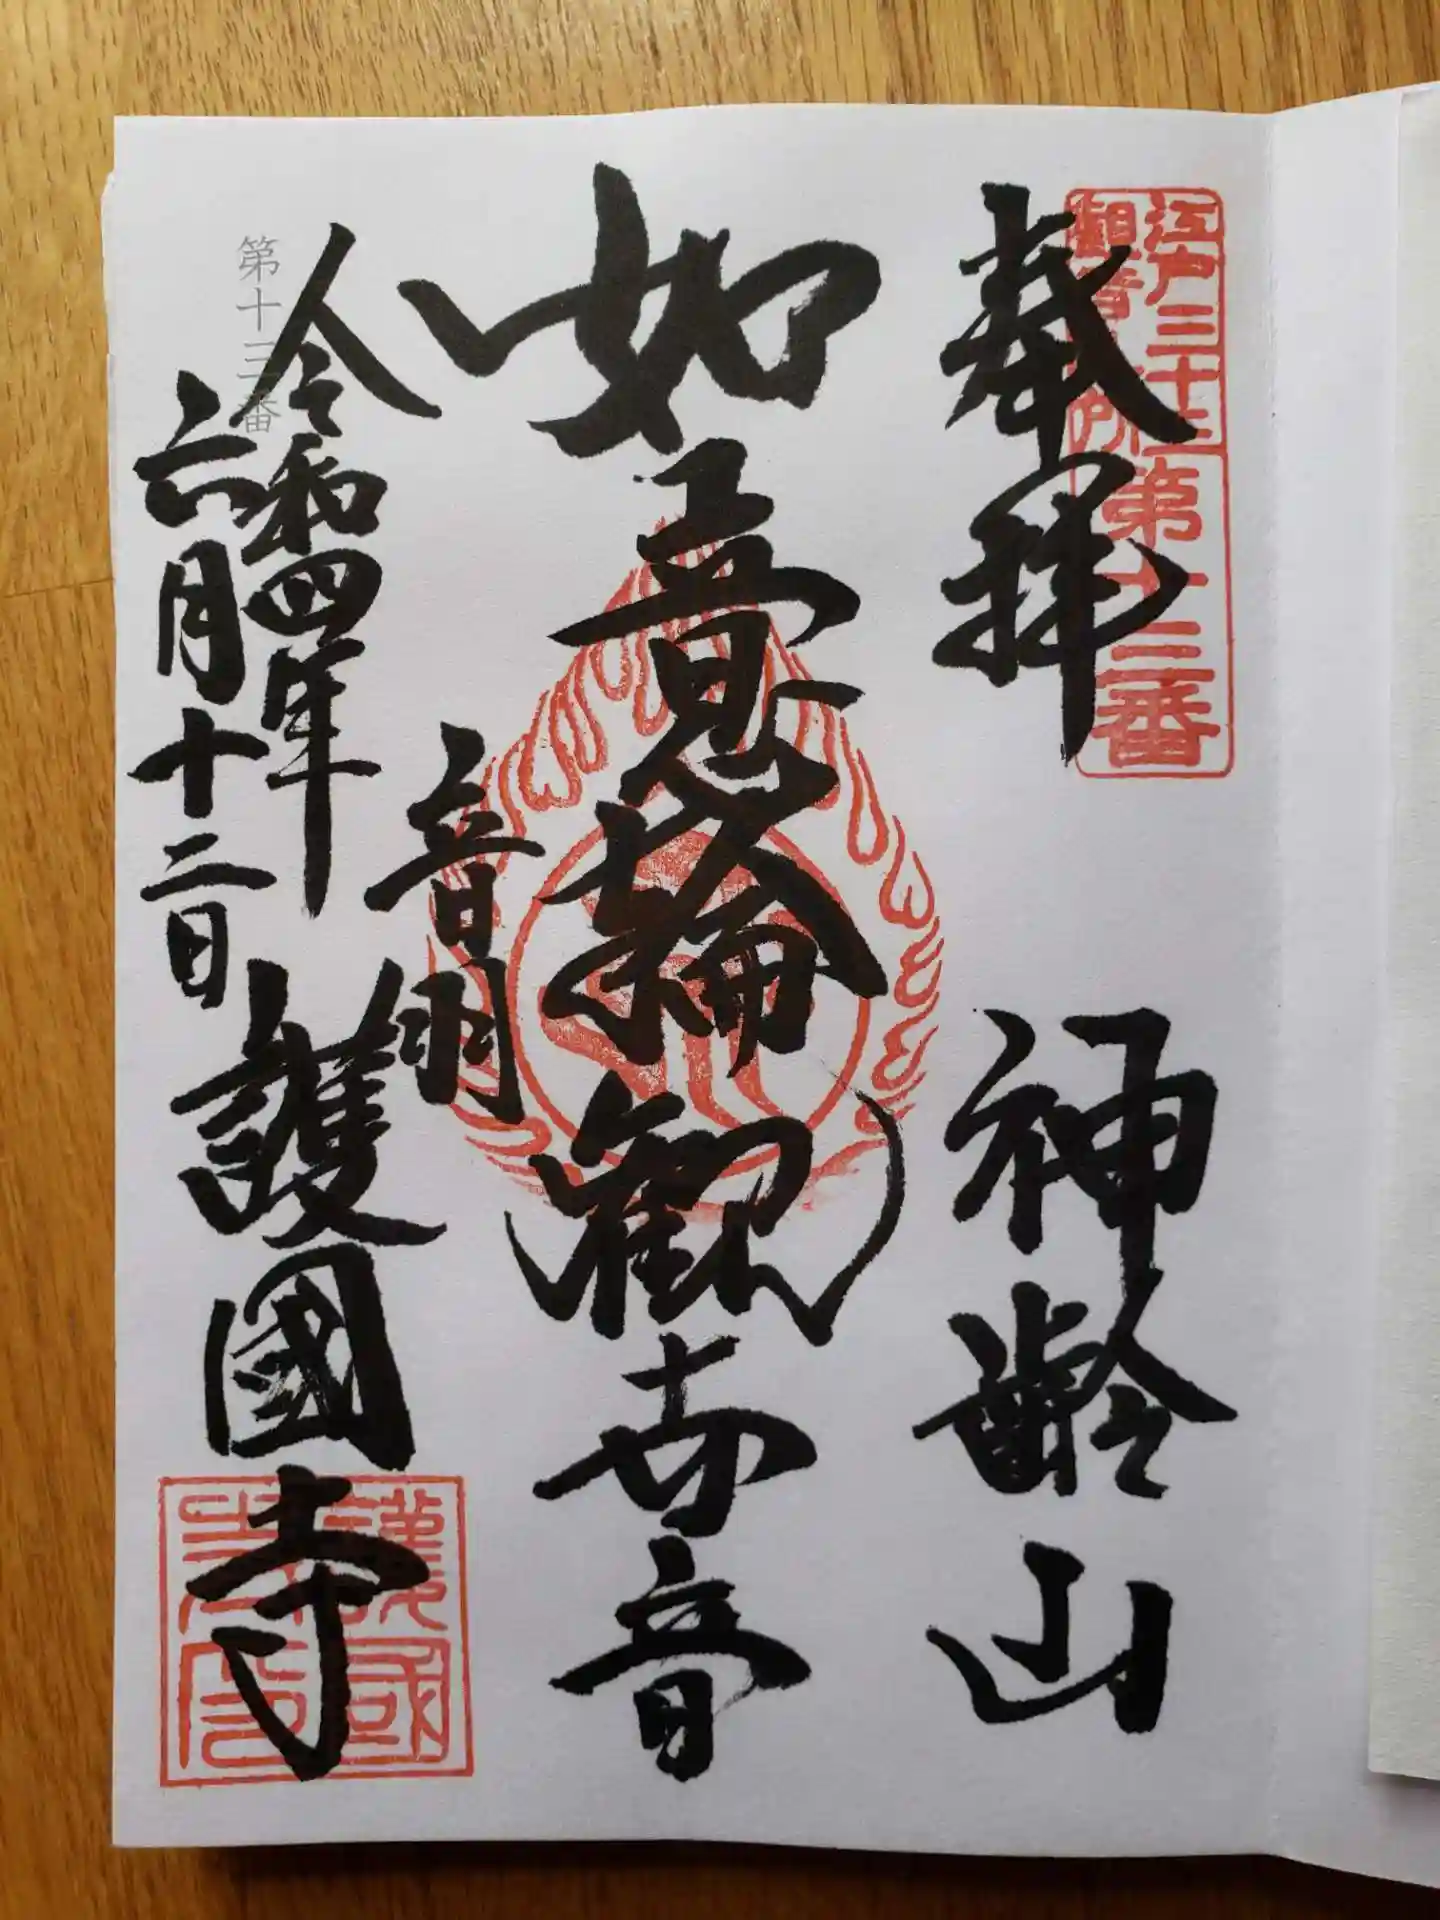 奉拝
神齢山
江戸三十三
観音札所
第十三番
如意輪観世音
音羽
護國寺
令和四年
六月十二日
第十三番
護國寺印